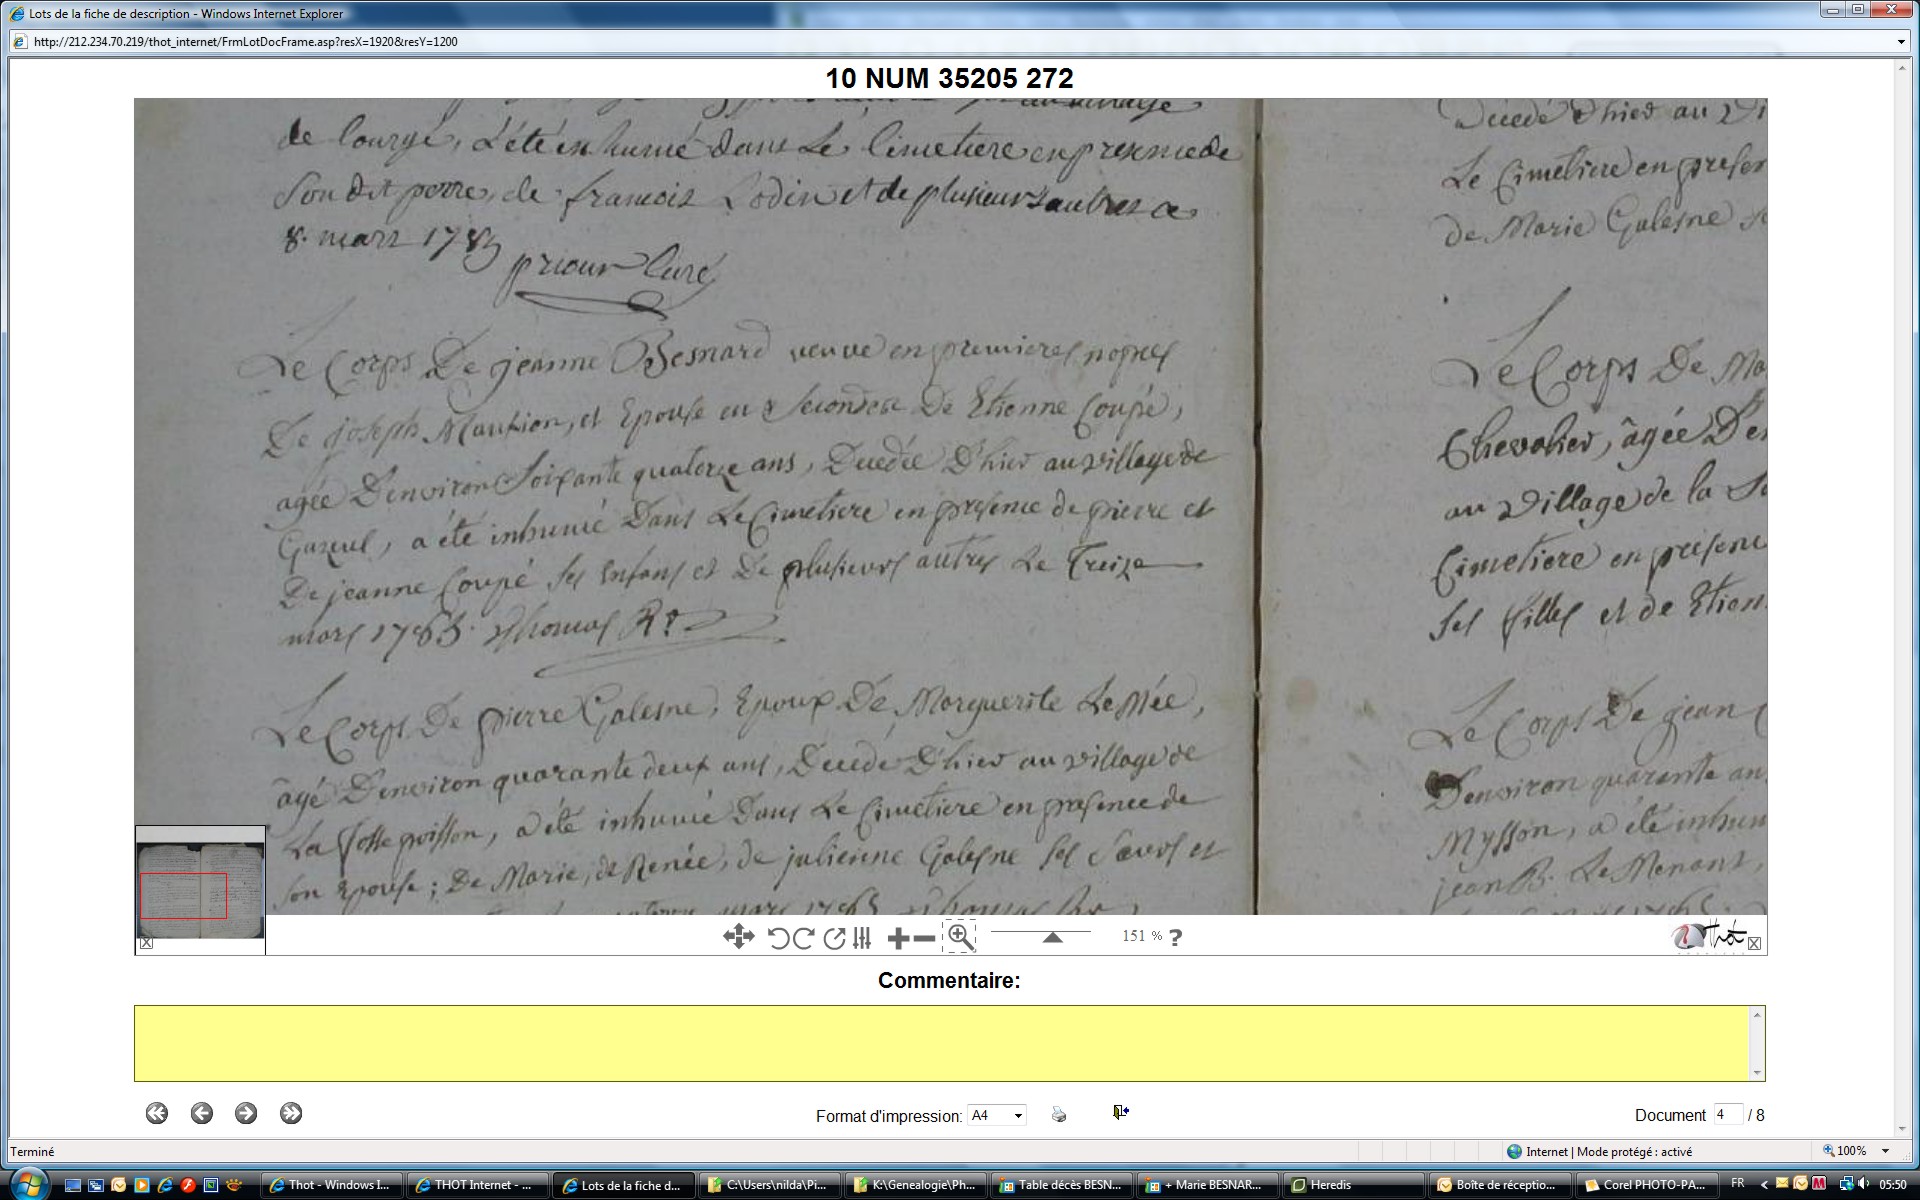 Lots de la fiche de description - Windows Internet Explorer
http://212.234.70.219/thot_internet/FrmLotDocFrame.asp?resX=1920&resY=1200
10 NUM 35205 272
de lourgé, a été inhumé dans Le Cimetiere en presence de
Son dit perre, de francois Lodin et de plusieurs autres ce
8. mars 1783
priour Curé
Le Corps De jeanne Besnard veuve en premieres nopces
De joseph Maution, et Epouse en Secondes De Etienne Coupé,
agée D'environ Soixante quatorze ans, Decedée D'hier au village de
Gazeul, a été inhumé Dans Le Cimetiere en presence de pierre et
De jeanne Coupé Ses Enfans et De plusieurs autres Le Treize
mars 1783. Thomas Rr
Le Corps De pierre Galesne, Epoux De Marguerite Le Mée,
âgé D'environ quarante deux ans, Decedé D'hier au village de
La fosse poisson, a été inhumé Dans Le Cimetiere en presence de
son Epouse; De Marie, de Renée, de julienne Galesne Ses Sœurs et
mars 1783 Thomas
Decedé d'hier au
Le Cimetiere en presen
de Marie Galesne
Le Corps De Ma
Chevalier, âgée D'en
au Village de la
Cimetiere en presenc
Ses filles et de Etien
Le Corps De jean
D'environ quarante an
Mysson, a été inhum
jean B. Le Menant,
151 % ?
Thot
Commentaire:
Format d'impression: A4
Document 4 / 8
Terminé
Internet | Mode protégé : activé
100%
Thot - Windows I...
THOT Internet - ...
Lots de la fiche d...
C:\Users\nilda\Pi...
K:\Genealogie\Ph...
Table décès BESN...
+ Marie BESNAR...
Heredis
Boîte de réceptio...
Corel PHOTO-PA...
FR
05:50